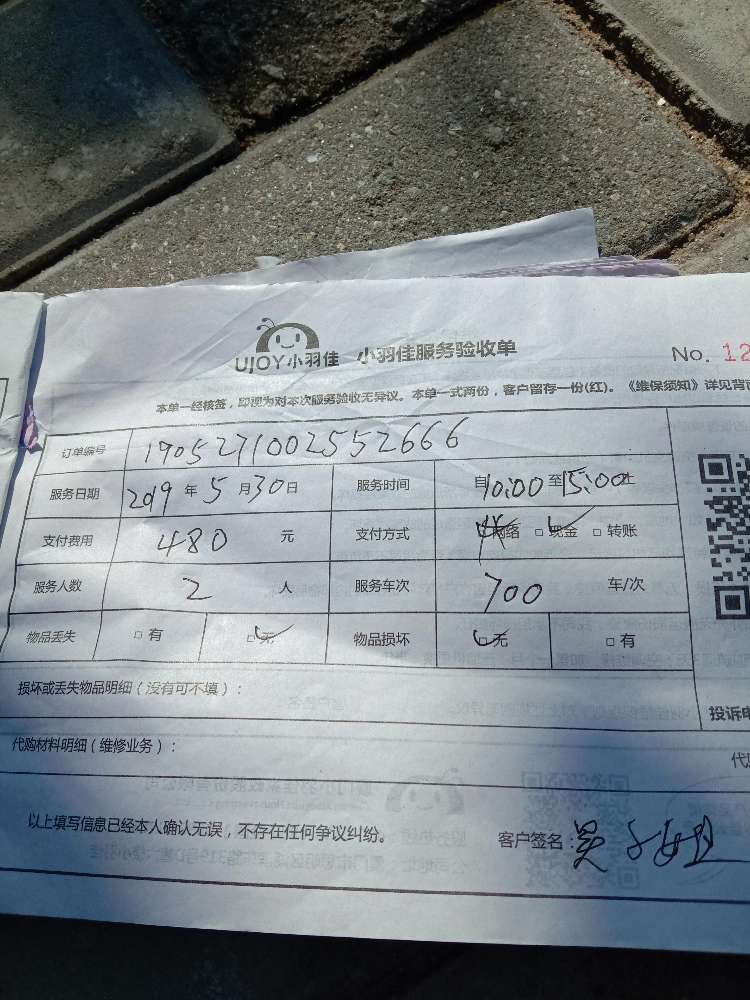 UJOY小羽佳 小羽佳服务验收单 No. 12
本单一经核签，即视为对本次服务验收无异议。本单一式两份，客户留存一份(红)。《维保须知》详见背
订单编号 1905271002552666
服务日期 2019 年 5 月 30 日 服务时间 自 10:00 至 15:00 止
支付费用 480 元 支付方式 □网络 □现金 □转账
服务人数 2 人 服务车次 700 车/次
物品丢失 □有 □无 物品损坏 □无 □有
损坏或丢失物品明细（没有可不填）：
投诉电
代购材料明细（维修业务）：
以上填写信息已经本人确认无误，不存在任何争议纠纷。 客户签名：吴